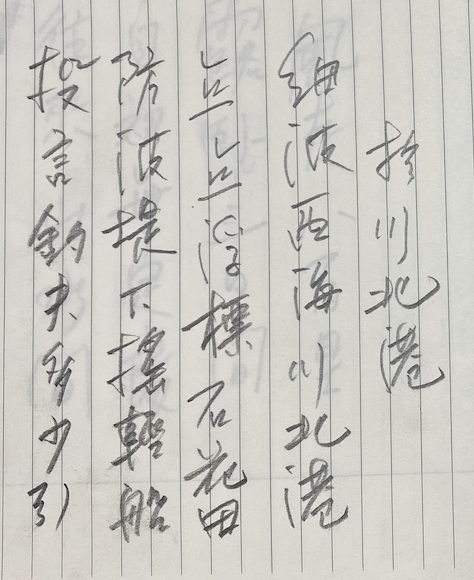 於川北港
細波西海川北港
点点浮標石花田
防波堤下搖輕船
投言釣夫多少引